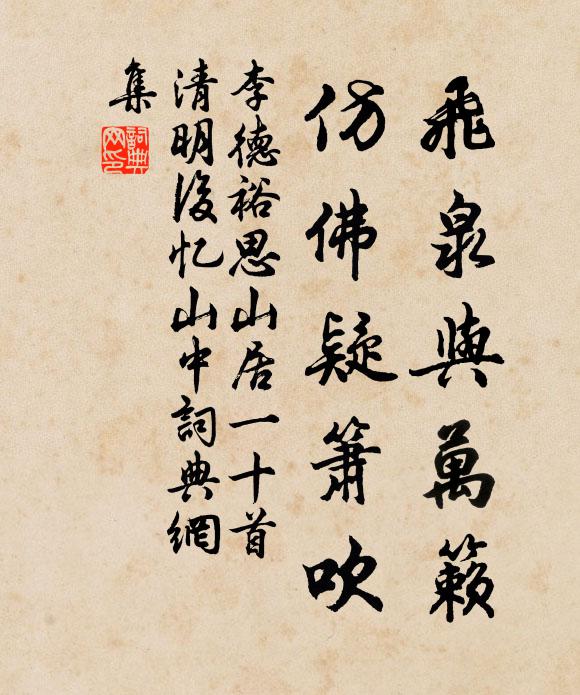 飛泉與萬籟
仿佛疑簫吹
李德裕思山居一十首
清明後忆山中詞典網
集
詞典網印